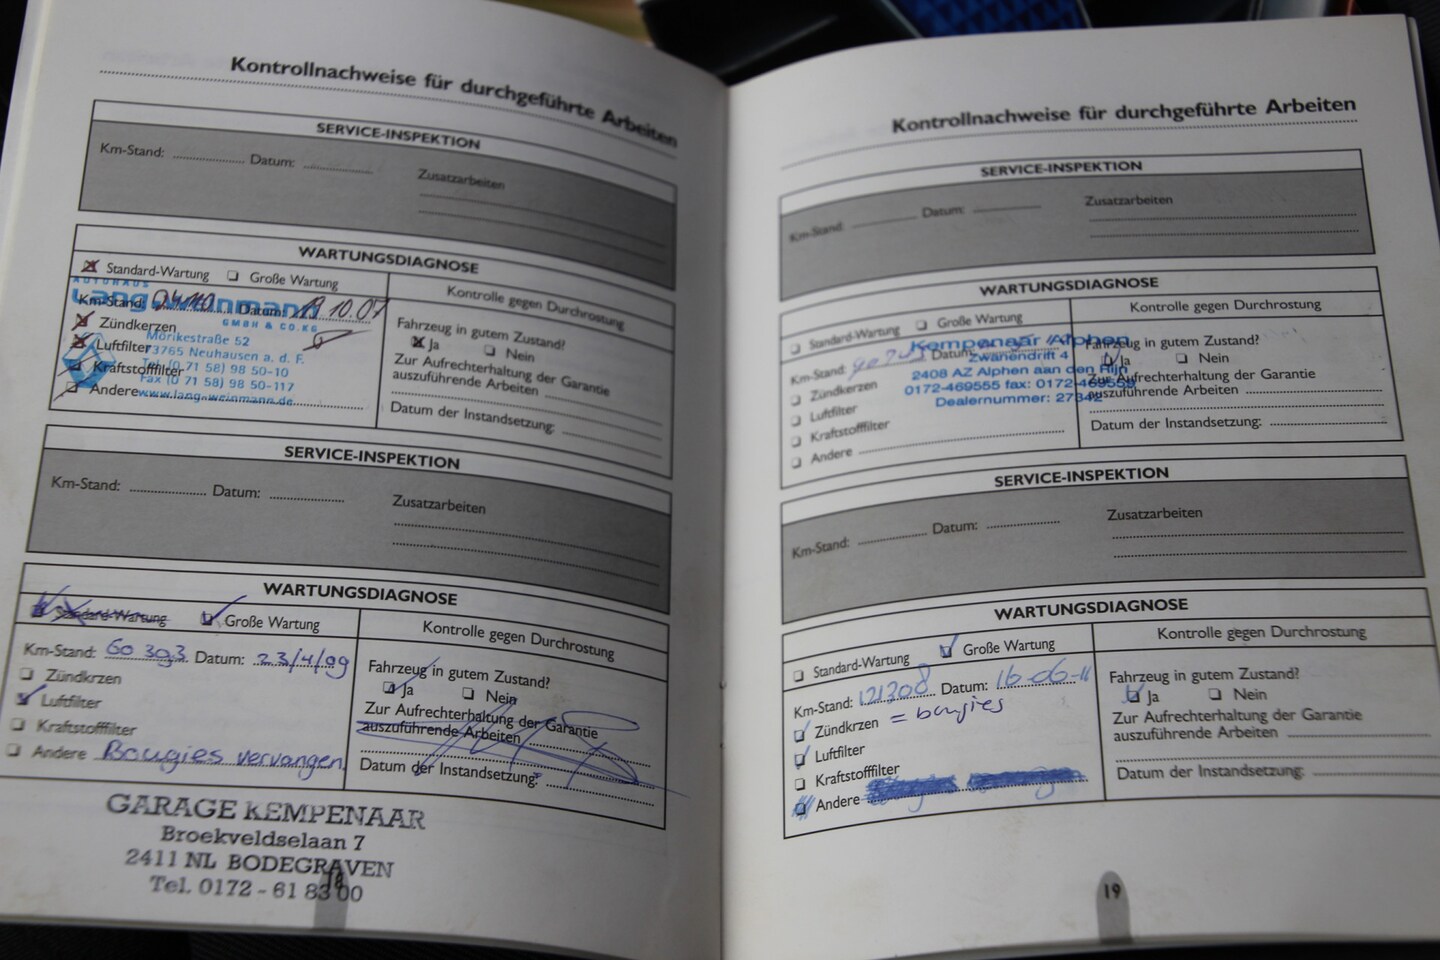 Kontrollnachweise für durchgeführte Arbeiten
SERVICE-INSPEKTION
Km-Stand: Datum: Zusatzarbeiten
WARTUNGSDIAGNOSE
Standard-Wartung Große Wartung
Kontrolle gegen Durchrostung
AUTOHAUS
Lang-Weinmann
GMBH & CO.KG
Mörikestraße 52
73765 Neuhausen a. d. F.
Tel. (0 71 58) 98 50-10
Fax (0 71 58) 98 50-117
www.lang-weinmann.de
Km-Stand: Datum: 19.10.07
Zündkerzen
Luftfilter
Kraftstofffilter
Andere
Fahrzeug in gutem Zustand?
Ja Nein
Zur Aufrechterhaltung der Garantie
auszuführende Arbeiten
Datum der Instandsetzung:
SERVICE-INSPEKTION
Km-Stand: Datum: Zusatzarbeiten
WARTUNGSDIAGNOSE
Standard-Wartung Große Wartung
Kontrolle gegen Durchrostung
Km-Stand: 60 393 Datum: 23/4/09
Zündkrzen
Luftfilter
Kraftstofffilter
Andere Bougies vervangen
Fahrzeug in gutem Zustand?
Ja Nein
Zur Aufrechterhaltung der Garantie
auszuführende Arbeiten
Datum der Instandsetzung:
GARAGE KEMPENAAR
Broekveldselaan 7
2411 NL BODEGRAVEN
Tel. 0172 - 61 83 00
18
Kontrollnachweise für durchgeführte Arbeiten
SERVICE-INSPEKTION
Km-Stand: Datum: Zusatzarbeiten
WARTUNGSDIAGNOSE
Standard-Wartung Große Wartung
Kontrolle gegen Durchrostung
Kempenaar Alphen
Zwanendrift 4
2408 AZ Alphen aan den Rijn
0172-469555 fax: 0172-469559
Dealernummer: 27342
Km-Stand: Datum:
Zündkerzen
Luftfilter
Kraftstofffilter
Andere
Fahrzeug in gutem Zustand?
Ja Nein
Zur Aufrechterhaltung der Garantie
auszuführende Arbeiten
Datum der Instandsetzung:
SERVICE-INSPEKTION
Km-Stand: Datum: Zusatzarbeiten
WARTUNGSDIAGNOSE
Standard-Wartung Große Wartung
Kontrolle gegen Durchrostung
Km-Stand: 121308 Datum: 16-06-11
Zündkrzen = bougies
Luftfilter
Kraftstofffilter
Andere
Fahrzeug in gutem Zustand?
Ja Nein
Zur Aufrechterhaltung der Garantie
auszuführende Arbeiten
Datum der Instandsetzung:
19